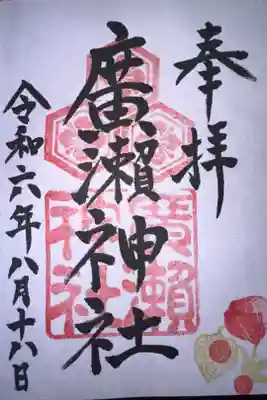 奉拝
廣瀬神社
令和六年八月十八日
廣瀬
神社